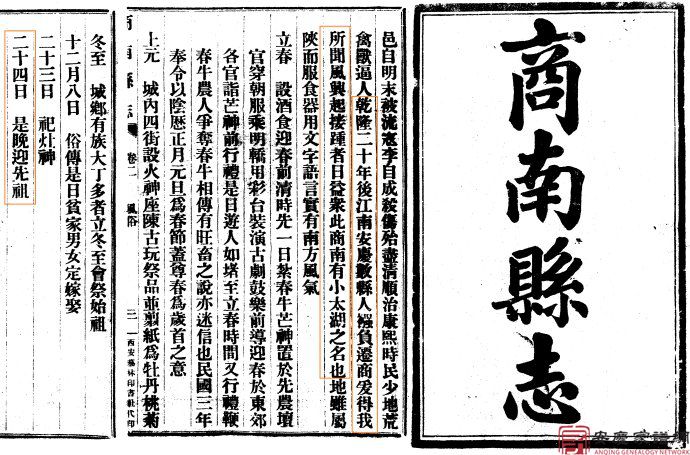 商南縣志
邑自明末被流寇李自成殺傷殆盡清順治康熙時民少地荒
禽獸逼人乾隆二十年後江南安慶數縣人襁負遷商爰得我
所聞風興起接踵者日益衆此商南有小太湖之名也地雖屬
陝而服食器用文字語言實有南方風氣
立春 設酒食迎春前清時先一日紮春牛芒神置於先農壇
官穿朝服乘明轎用彩台裝演古劇鼓樂前導迎春於東郊
各官詣芒神前行禮是日遊人如堵至立春時間又行禮鞭
春牛農人爭奪春牛相傳有旺畜之說亦迷信也民國三年
奉令以陰歷正月元旦爲春節蓋尊春爲歲首之意
上元 城內四街設火神座陳古玩祭品並剪紙爲牡丹桃菊
商南縣志 卷二 風俗 三 西安藝林印書社代印
冬至 城鄉有族大丁多者立冬至會祭始祖
十二月八日 俗傳是日貧家男女定嫁娶
二十三日 祀灶神
二十四日 是晚迎先祖
安慶家譜網
ANQING GENEALOGY NETWORK